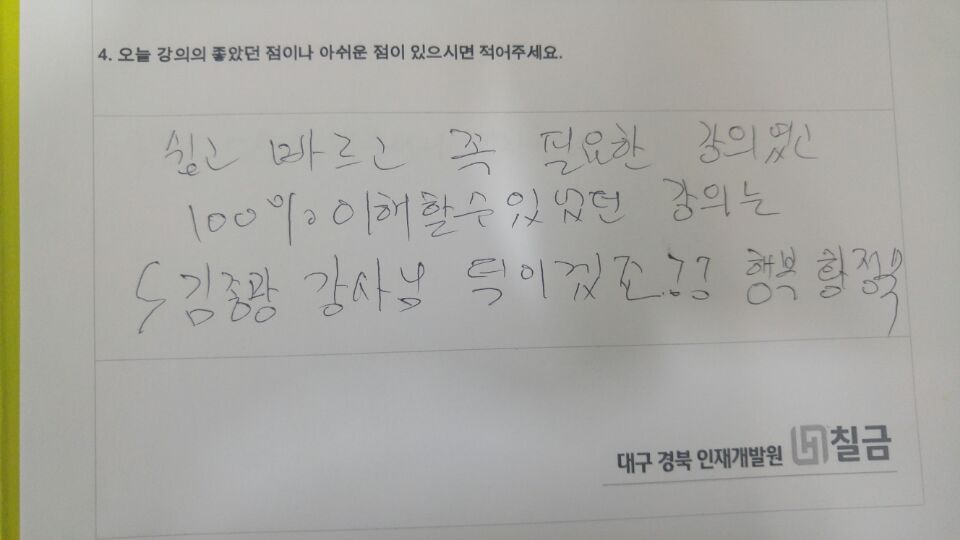 4. 오늘 강의의 좋았던 점이나 아쉬운 점이 있으시면 적어주세요.
쉽고 빠르고 꼭 필요한 강의였고
100% 이해할수 있었던 강의는
김종광 강사님 덕이겠죠.?? 행복
대구 경북 인재개발원 칠금